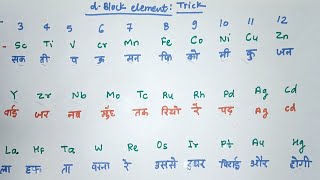 d-Block element: Trick
3 4 5 6 7 8 9 10 11 12
- Sc Ti V Cr Mn Fe Co Ni Cu Zn
- सक ही प क्र मन फि को नी कु जन
Y Zr Nb Mo Tc Ru Rh Pd Ag Cd
वाई जर नब मुँह तक रियो रे पद Ag cd
La Hf Ta W Re Os Ir Pt Au Hg
ला हफ ता वरना रे उससे इधर पिटाई और होगी